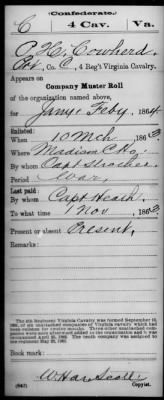 (Confederate.)
C 4 Cav. Va.
P. H. Cowherd
Pvt, Co. C, 4 Reg't Virginia Cavalry.
Appears on
Company Muster Roll
of the organization named above,
for Jany & Feby, 1864
Enlisted:
When 10 Mch, 1863
Where Madison C.Ho.
By whom Capt Strother
Period War
Last paid:
By whom Capt Heath
To what time 1 Nov, 1863
Present or absent Present
Remarks:
Book mark:
(642) Copyist.